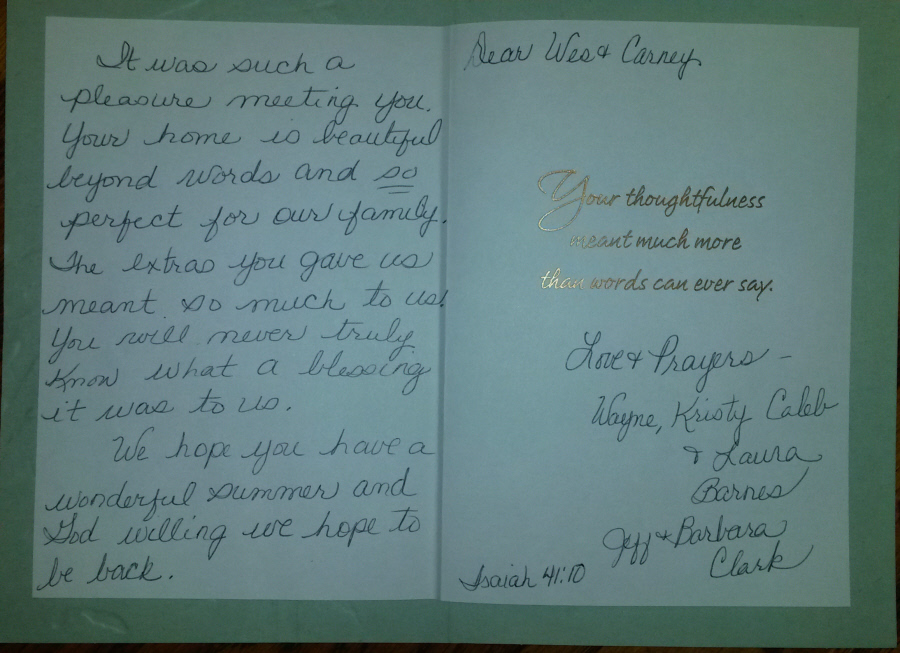 It was such a
pleasure meeting you.
Your home is beautiful
beyond words and so
perfect for our family.
The extras you gave us
meant so much to us!
You will never truly
know what a blessing
it was to us.
We hope you have a
wonderful summer and
God willing we hope to
be back.
Dear Wes & Carney
Your thoughtfulness
meant much more
than words can ever say.
Love & Prayers -
Wayne, Kristy Caleb
& Laura
Barnes
Jeff & Barbara
Clark
Isaiah 41:10